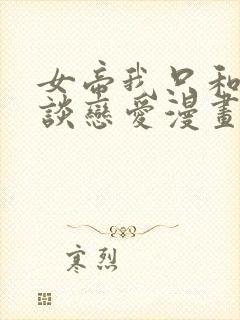 女帝我只和
談戀愛漫畫
寒烈